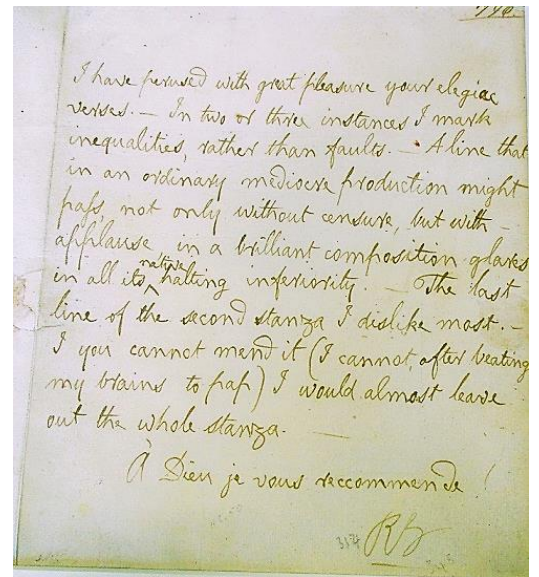 I have perused with great pleasure your elegiac
verses. — In two or three instances I mark
inequalities, rather than faults. — A line that
in an ordinary mediocre production might
pass, not only without censure, but with
applause in a brilliant composition glares
in all its native halting inferiority. — The last
line of the second stanza I dislike most. —
I you cannot mend it (I cannot, after beating
my brains to pap) I would almost leave
out the whole stanza. —
À Dieu je vous reccommende !
RB